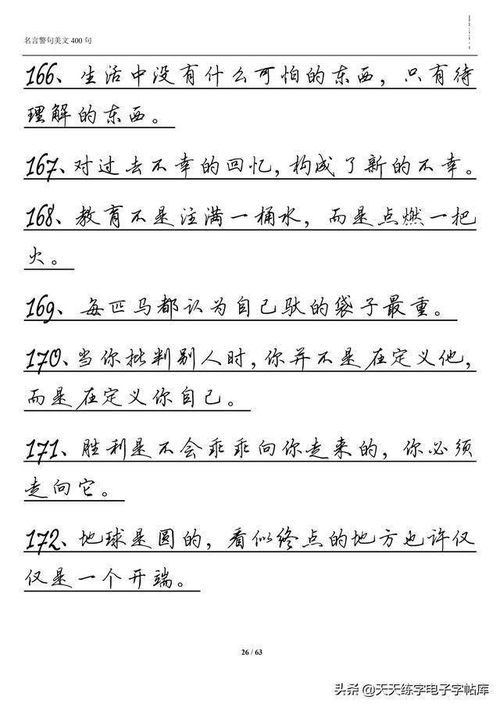 名言警句美文 400 句
166、生活中没有什么可怕的东西，只有待
理解的东西。
167、对过去不幸的回忆，构成了新的不幸。
168、教育不是注满一桶水，而是点燃一把
火。
169、每匹马都认为自己驮的袋子最重。
170、当你批判别人时，你并不是在定义他，
而是在定义你自己。
171、胜利是不会乖乖向你走来的，你必须
走向它。
172、地球是圆的，看似终点的地方也许仅
仅是一个开端。
26 / 63
头条 @天天练字电子字帖库